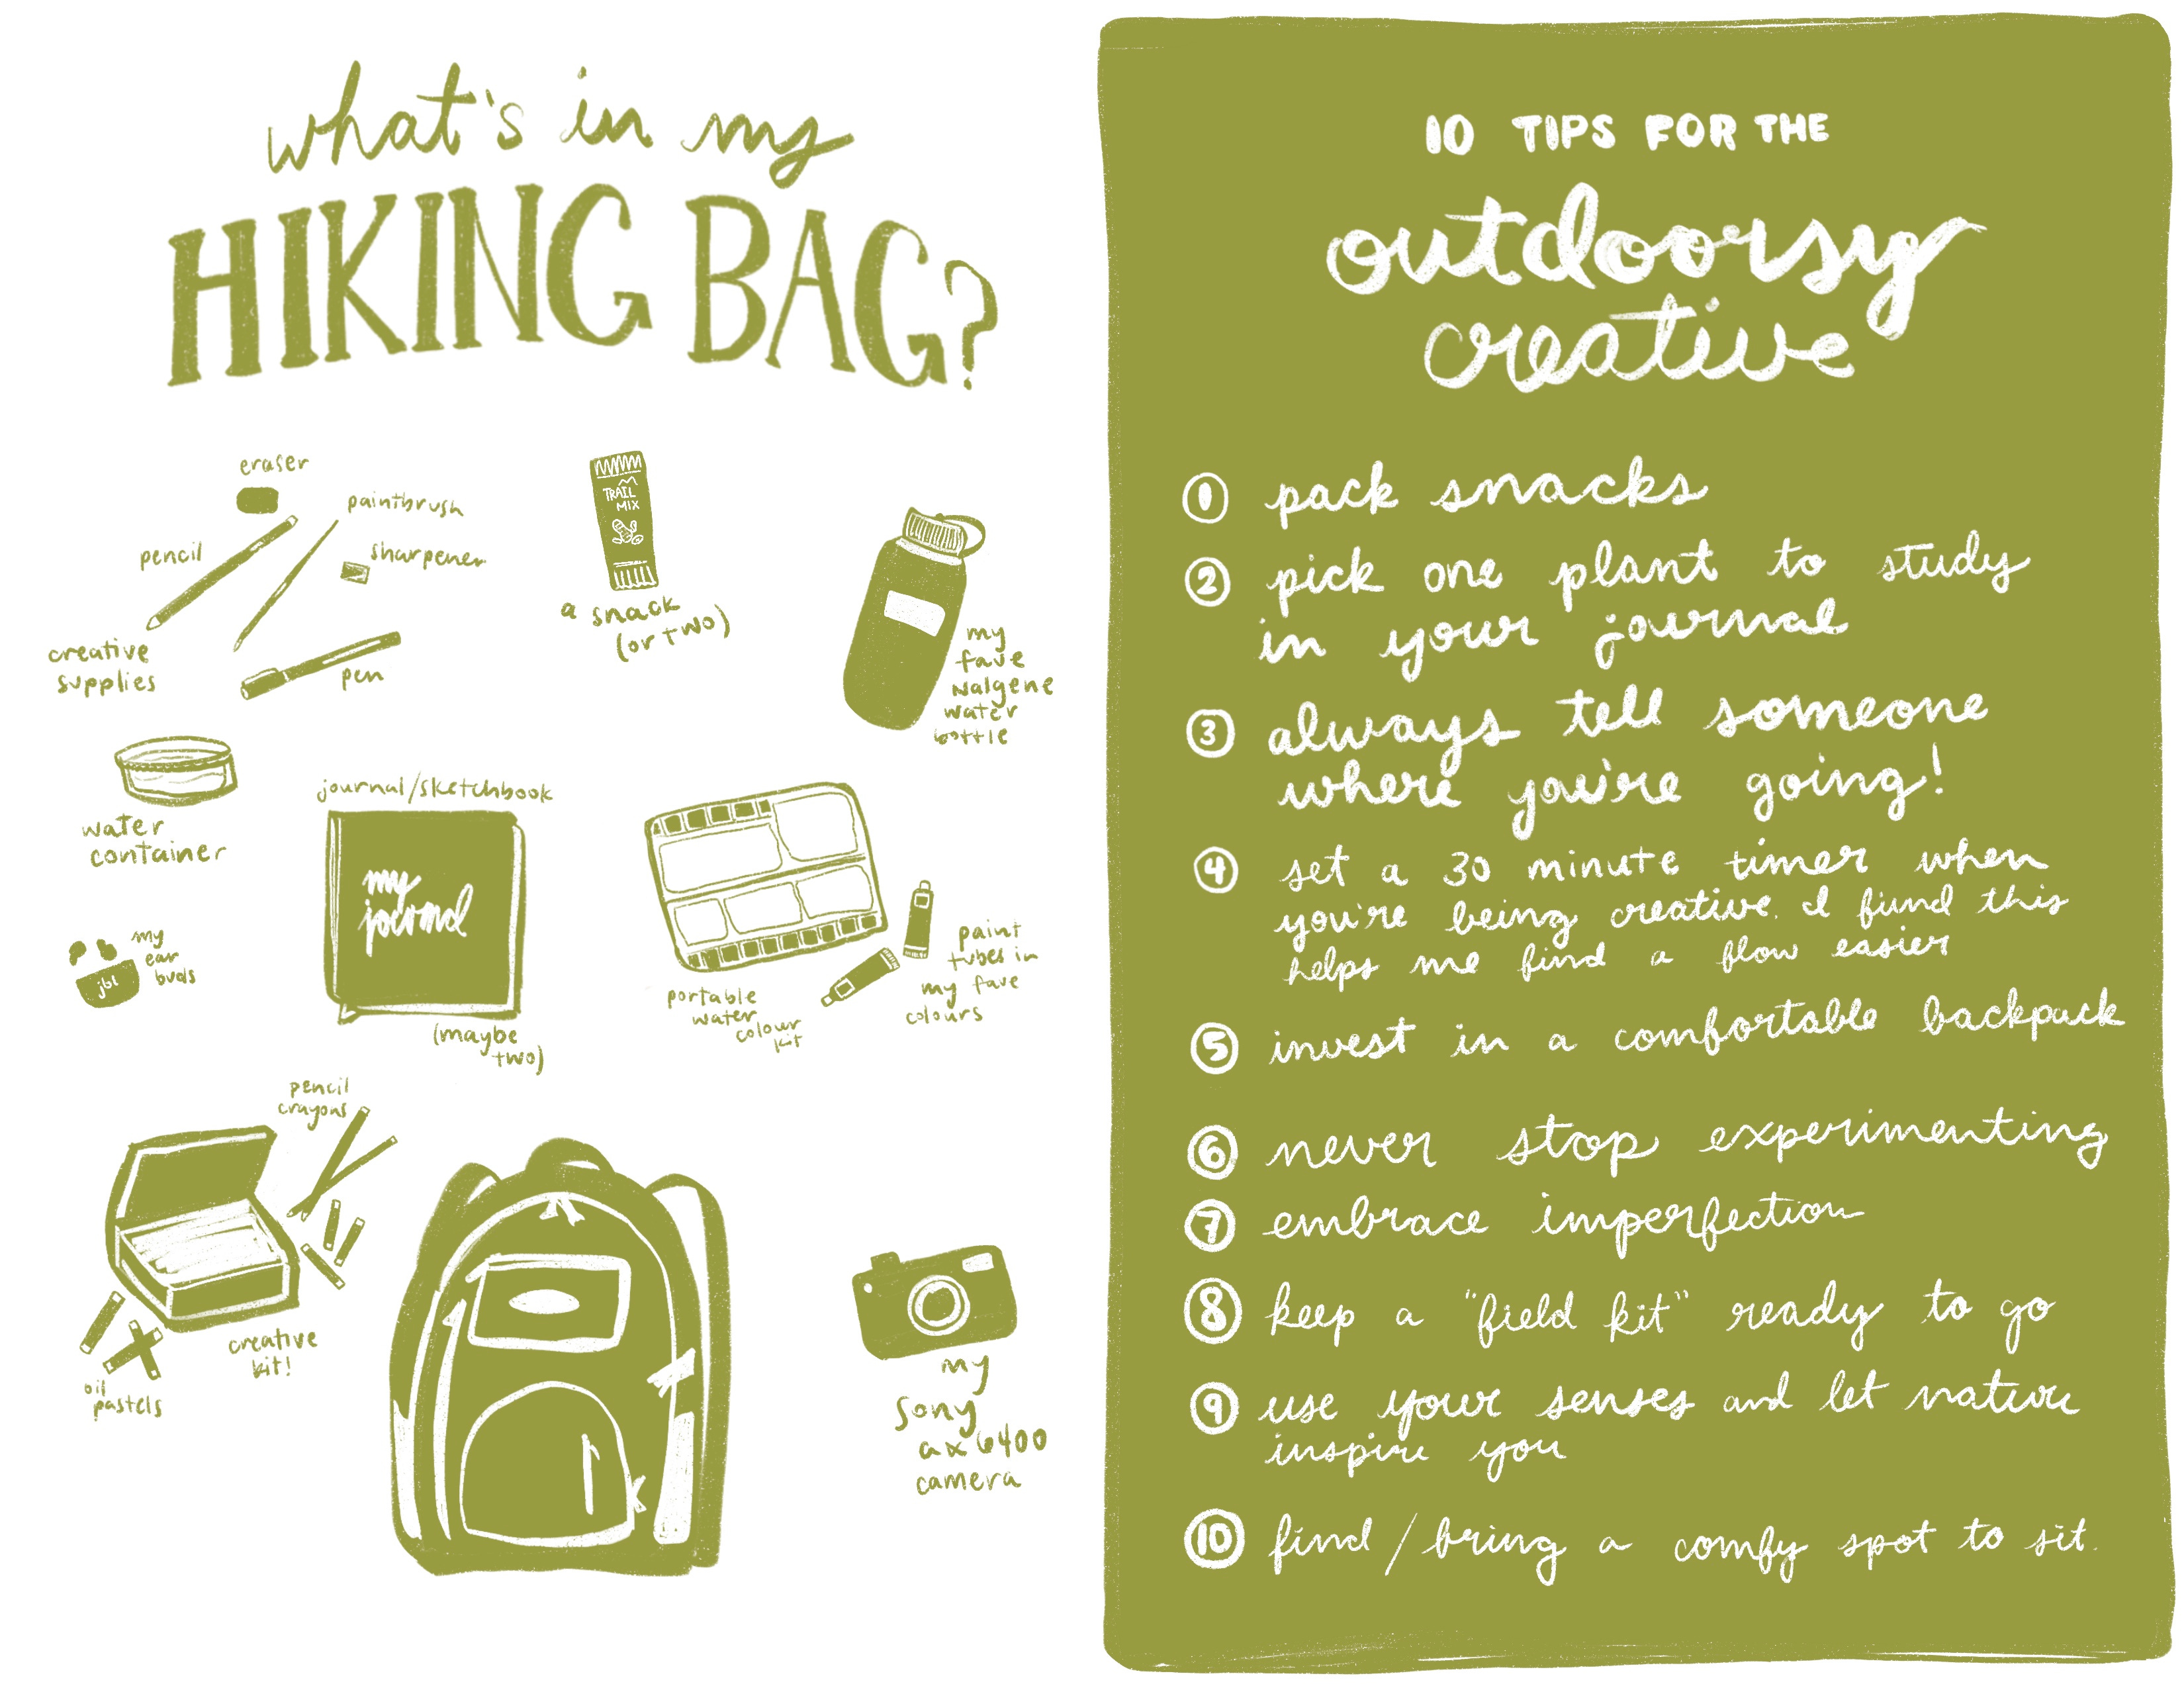 what's in my
HIKING BAG?
eraser
paintbrush
pencil
sharpener
creative
supplies
pen
TRAIL
MIX
a snack
(or two)
my
fave
Nalgene
water
bottle
water
container
journal/sketchbook
my
journal
(maybe
two)
my
ear
buds
jbl
portable
water
colour
kit
paint
tubes in
my fave
colours
pencil
crayons
creative
kit!
oil
pastels
my
Sony
ax6400
camera
10 TIPS FOR THE
outdoorsy
creative
1 pack snacks
2 pick one plant to study
in your journal
3 always tell someone
where you're going!
4 set a 30 minute timer when
you're being creative. I fiind this
helps me find a flow easier
5 invest in a comfortable backpack
6 never stop experimenting
7 embrace imperfection
8 keep a "field kit" ready to go
9 use your senses and let nature
inspire you
10 find/bring a comfy spot to sit.